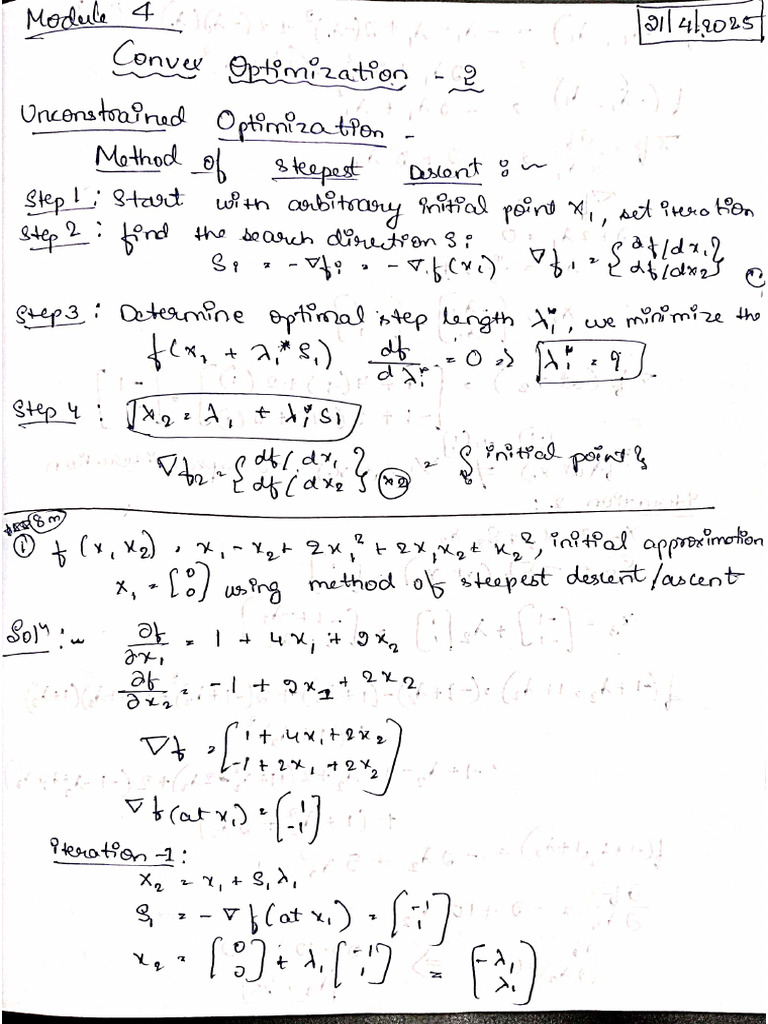 Module 4
21/4/2025
Convex Optimization - 2
Unconstrained Optimization -
Method of steepest Descent :~
Step 1 : Start with arbitrary initial point x₁, set iteration
Step 2 : find the search direction Si
Si = -∇fi = -∇f(xi) ∇f₁ = {∂f/dx₁
df/dx₂}
Step 3 : Determine optimal step length λi*, we minimize the
f(x₁ + λ₁* S₁) df/dλi* = 0 => λi* = ?
Step 4 : x₂ = λ₁ + λi* S₁
∇f₂ = {df/dx₁
df/dx₂} x₂ = { initial point }
8m
① f(x₁x₂) = x₁ - x₂ + 2x₁² + 2x₁x₂ + x₂², initial approximation
x₁ = [0
0] using method of steepest descent/ascent
Solⁿ :~ ∂f/∂x₁ = 1 + 4x₁ + 2x₂
∂f/∂x₂ = -1 + 2x₁ + 2x₂
∇f = [1 + 4x₁ + 2x₂
-1 + 2x₁ + 2x₂]
∇f(at x₁) = [1
-1]
iteration -1 :
x₂ = x₁ + S₁λ₁
S₁ = -∇f(at x₁) = [-1
1]
x₂ = [0
0] + λ₁ [-1
1] = [-λ₁
λ₁]